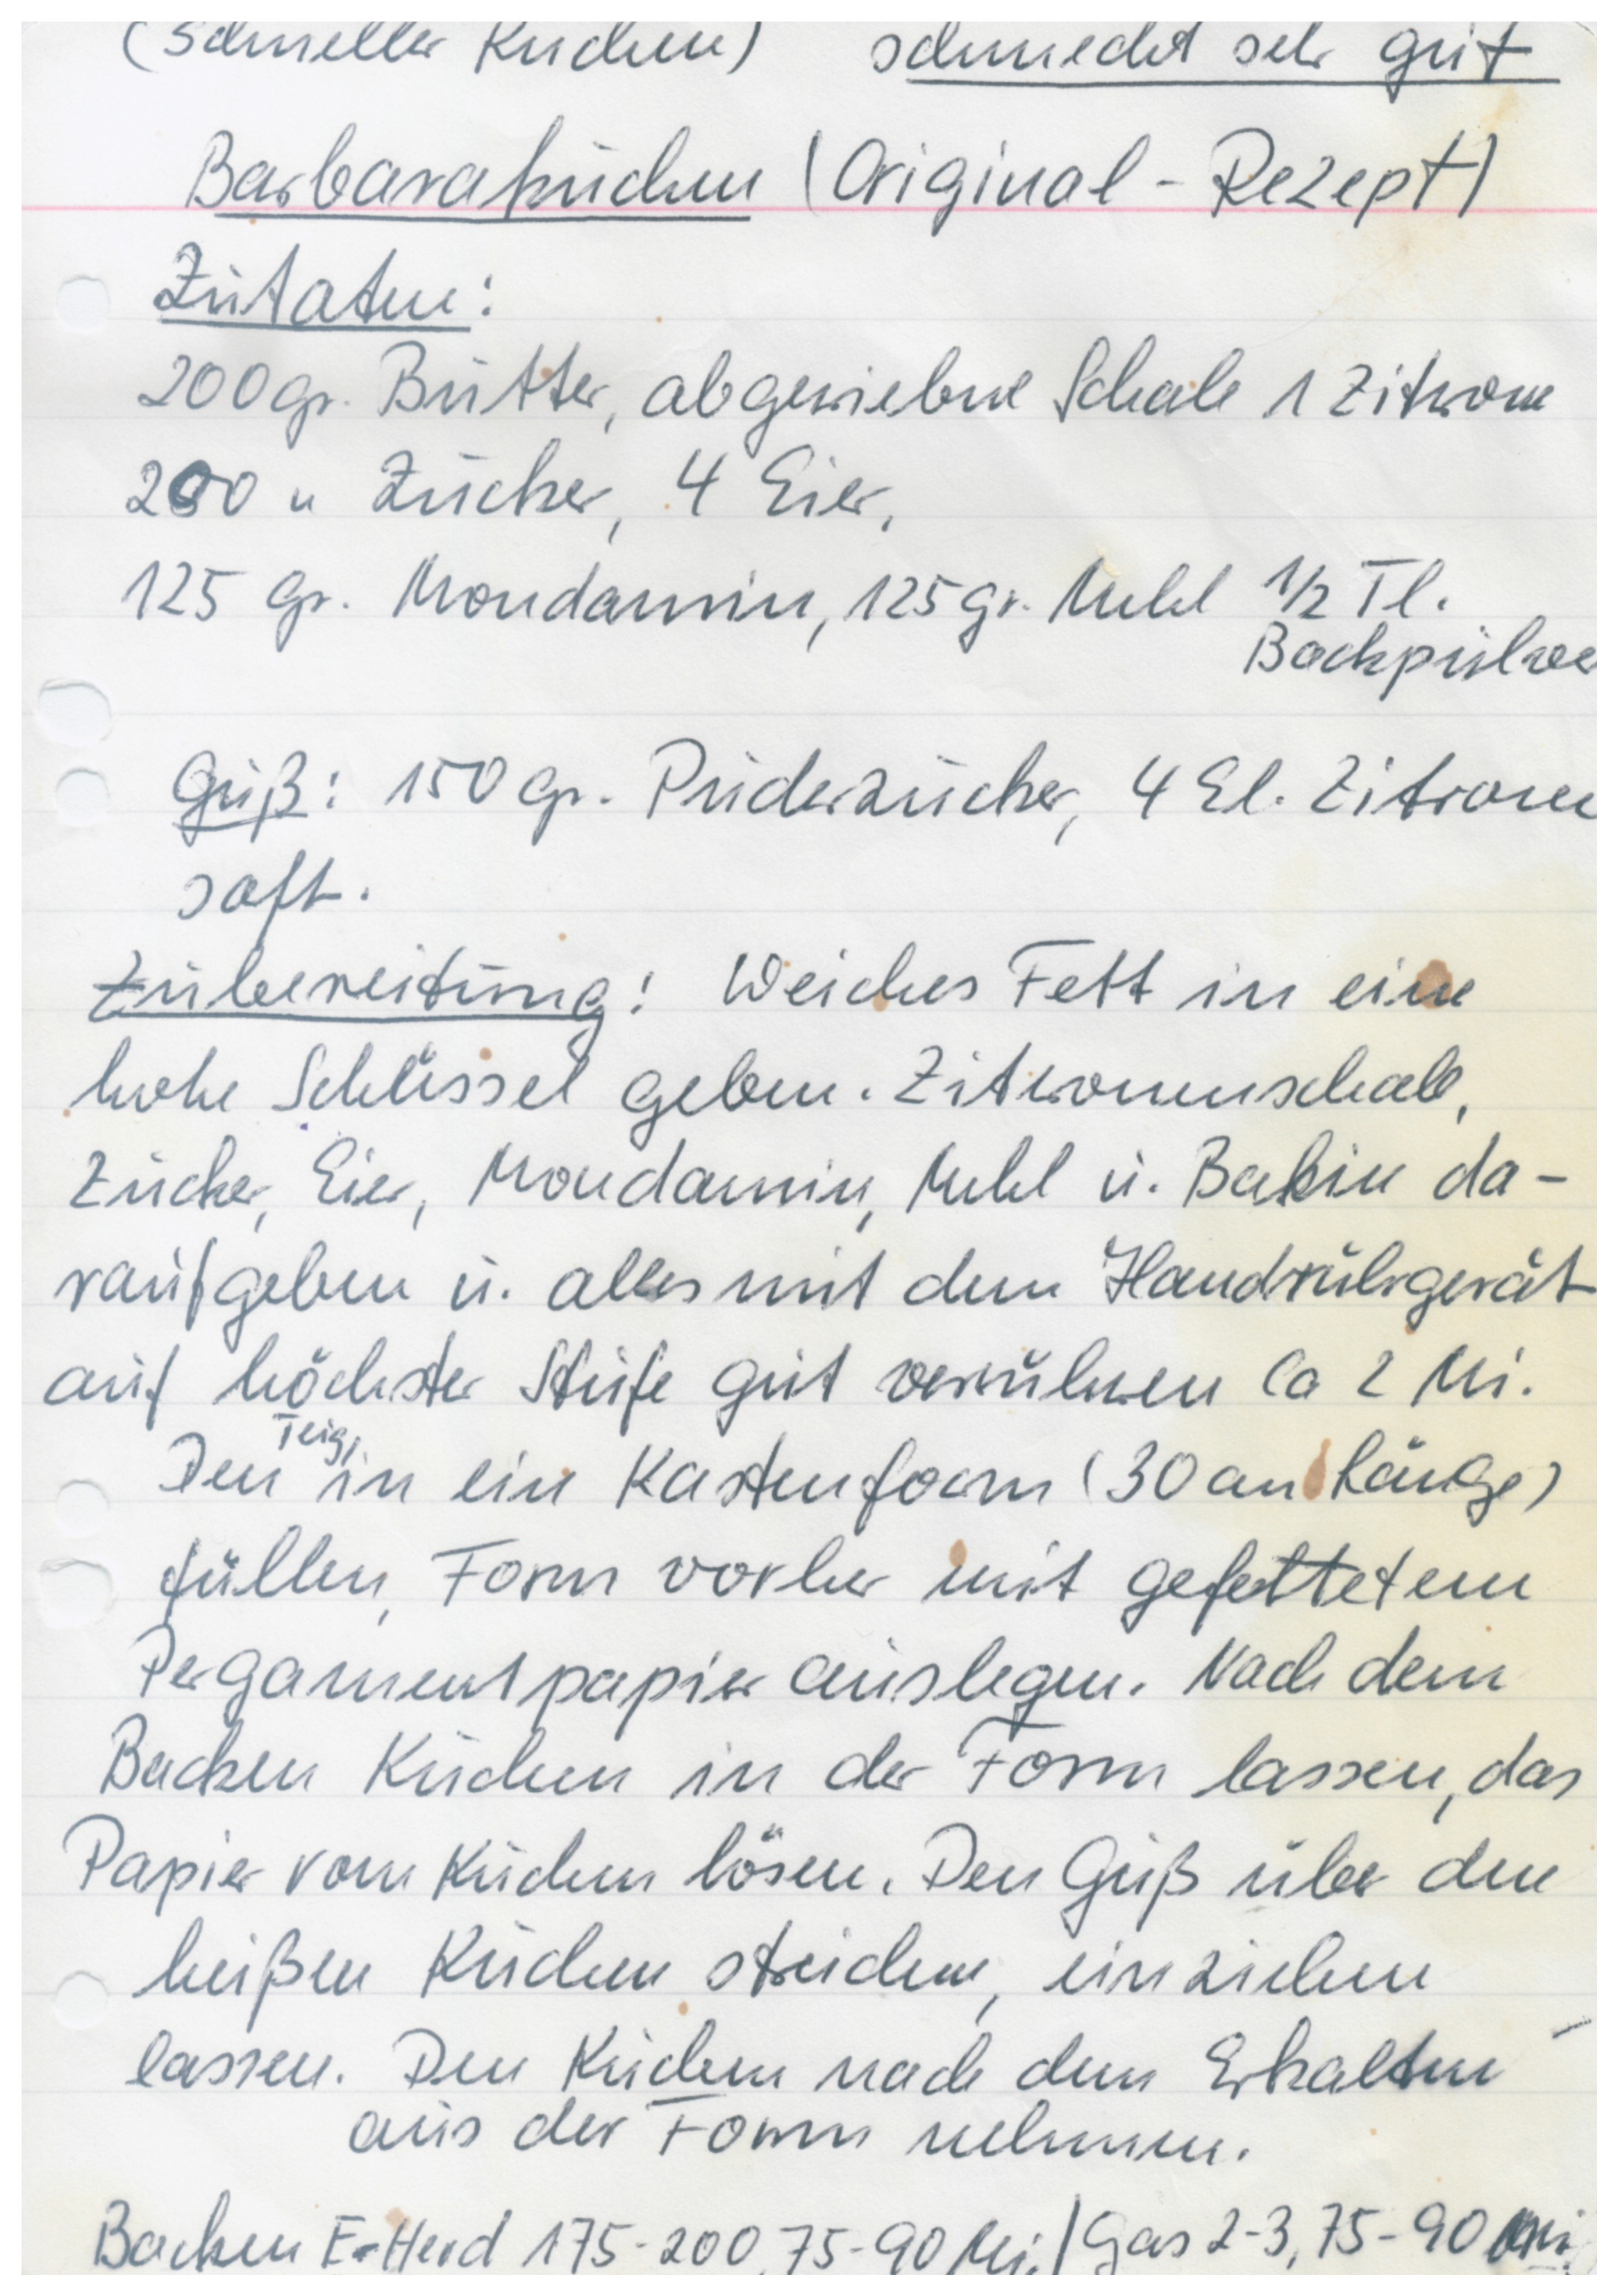 (Schneller Kuchen) schmeckt sehr gut
Barbarakuchen (Original-Rezept)
Zutaten:
200 gr. Butter, abgeriebne Schale 1 Zitrone
200 " Zucker, 4 Eier,
125 gr. Mondamin, 125 gr. Mehl 1/2 Tl.
Backpulver
Guß: 150 gr. Puderzucker, 4 El. Zitronen
saft.
Zubereitung: Weiches Fett in eine
hohe Schüssel geben. Zitronenschale,
Zucker, Eier, Mondamin, Mehl u. Bakin da-
raufgeben u. alles mit dem Handrührgerät
auf höchster Stufe gut verrühren Ca 2 Mi.
Den Teig in ein Kastenform (30 cm Länge)
füllen, Form vorher mit gefettetem
Pergamentpapier auslegen. Nach dem
Backen Kuchen in der Form lassen, das
Papier vom Kuchen lösen. Den Guß über den
heißen Kuchen streichen, einziehen
lassen. Den Kuchen nach dem Erkalten
aus der Form nehmen.
Backen E-Herd 175-200, 75-90 Mi. / Gas 2-3, 75-90 Mi.